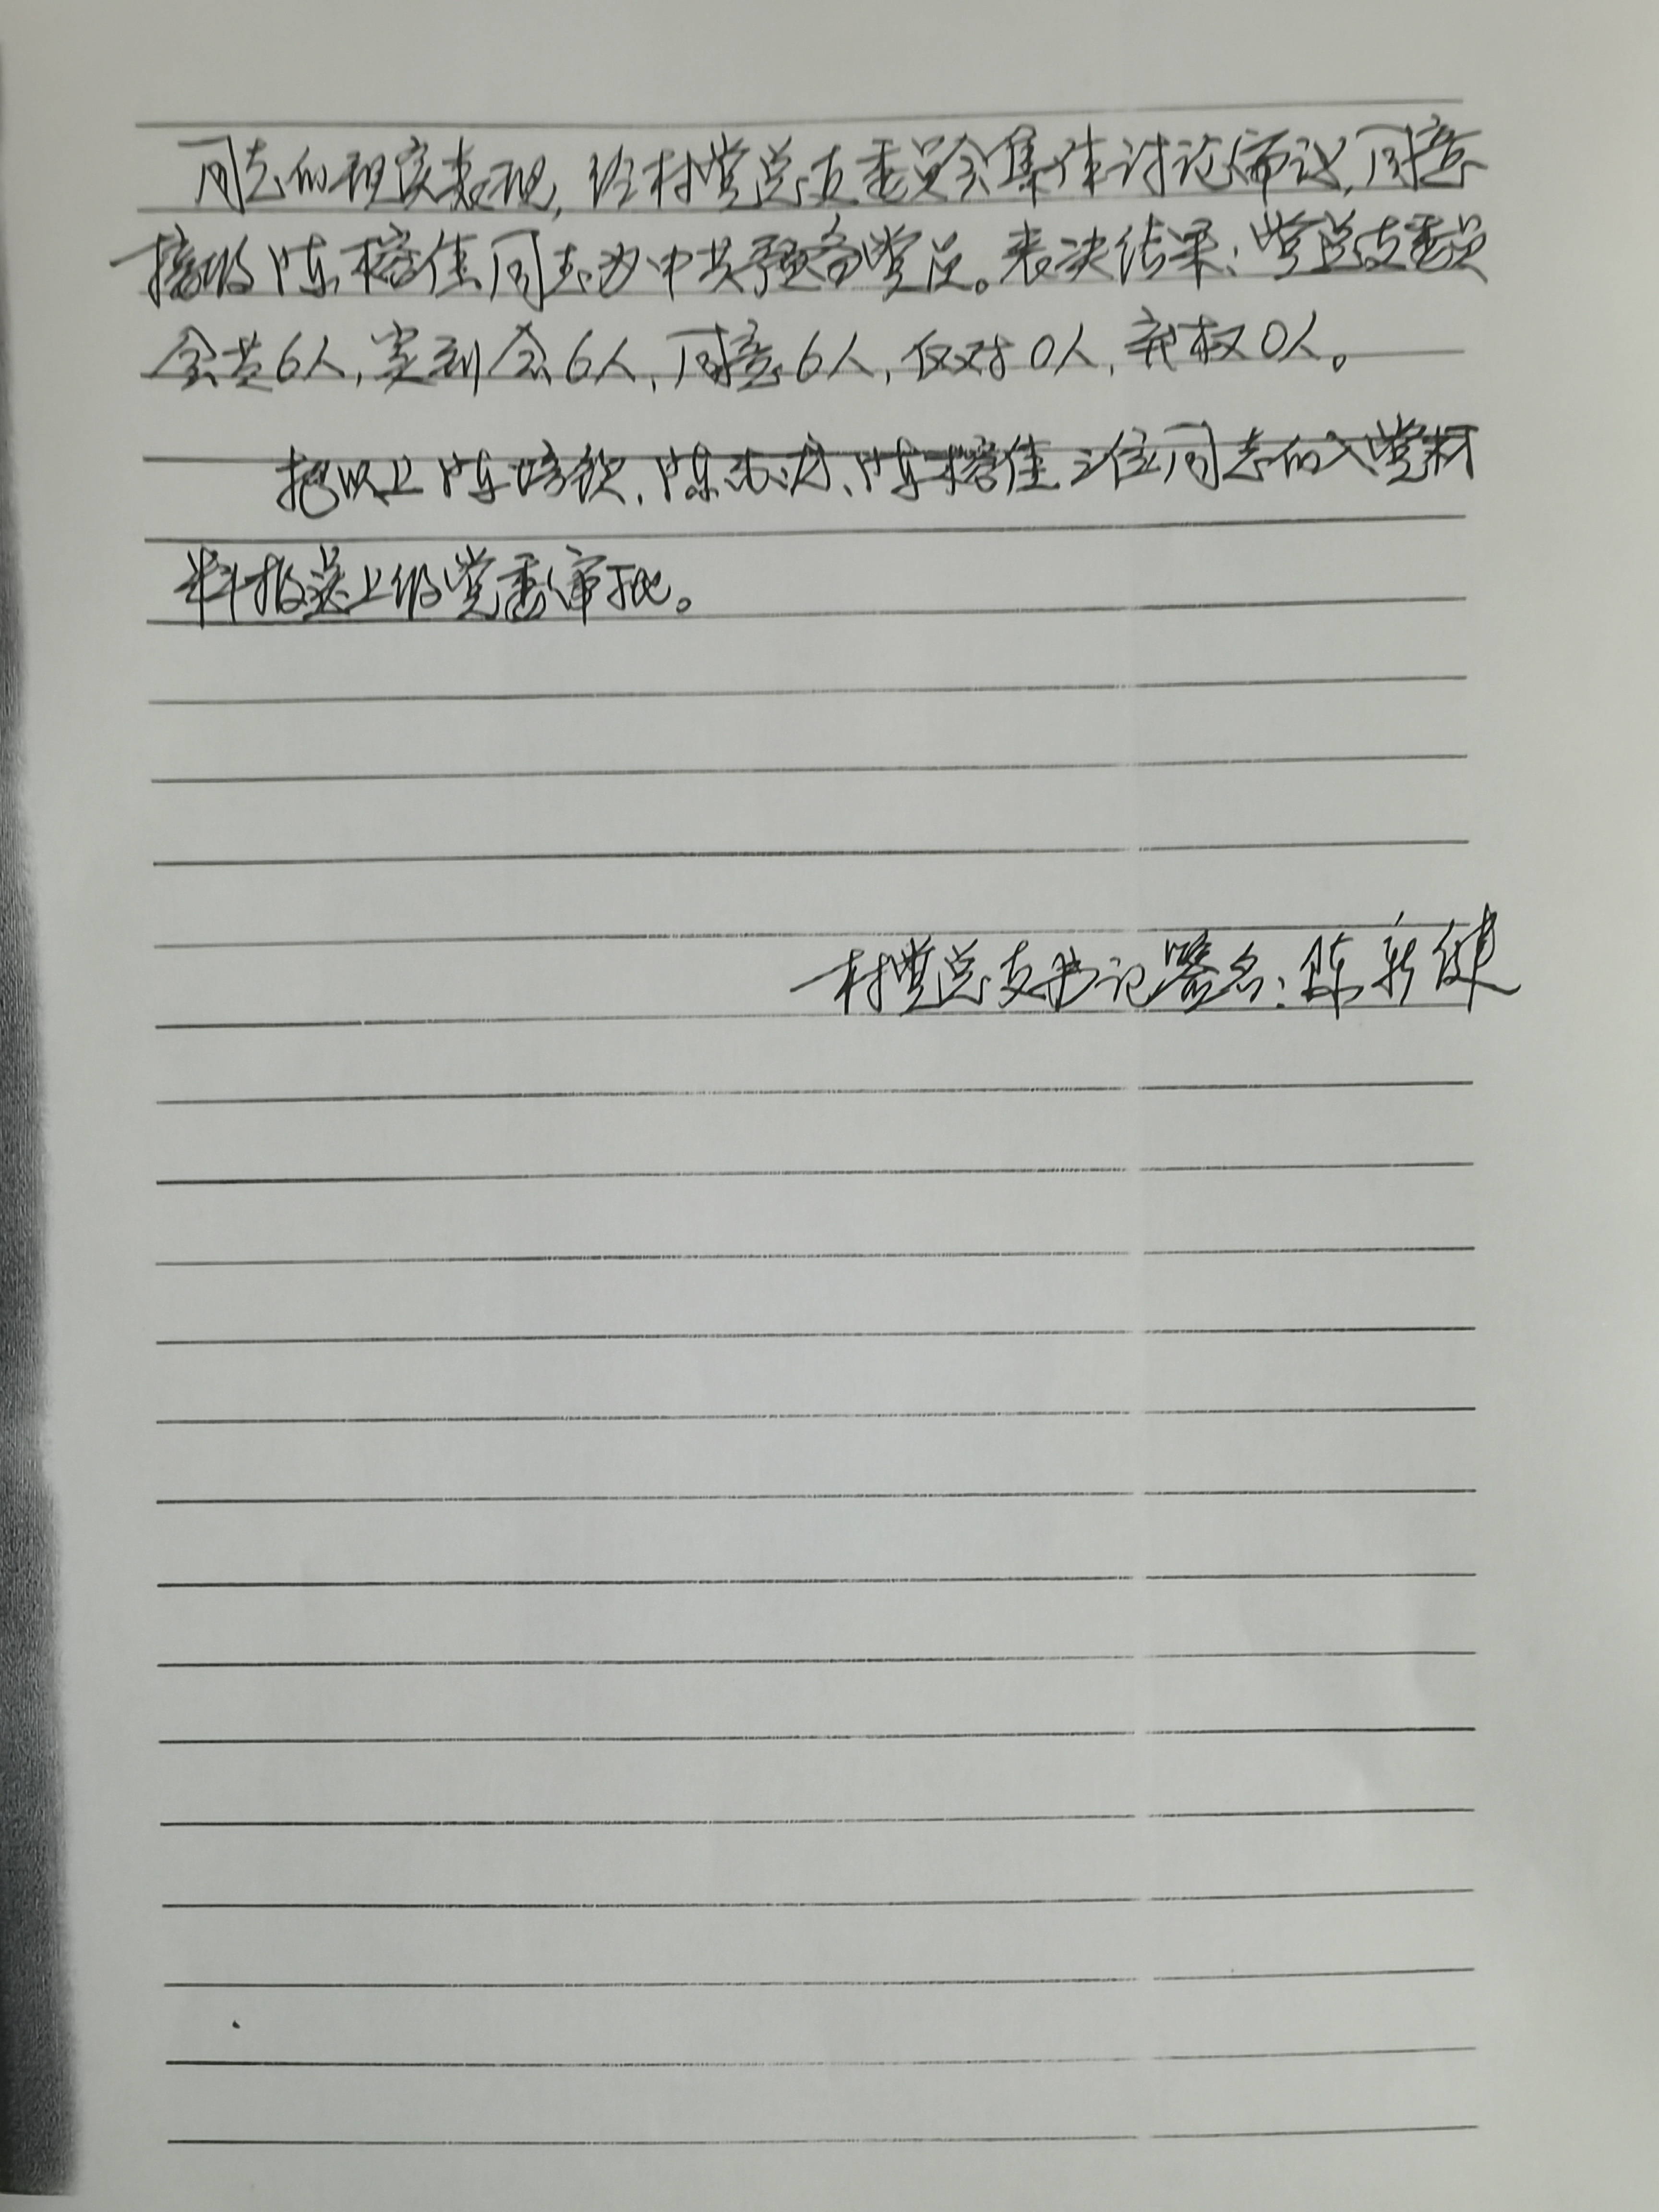 同志的现实表现,经村党总支委员会集体讨论审议,同意
接收陈榕佳同志为中共预备党员。表决结果:党总支委员
会共6人,实到会6人,同意6人,反对0人,弃权0人。
把以上陈 、陈 、陈榕佳三位同志的入党材
料报送上级党委审批。
村党总支书记署名:陈新健